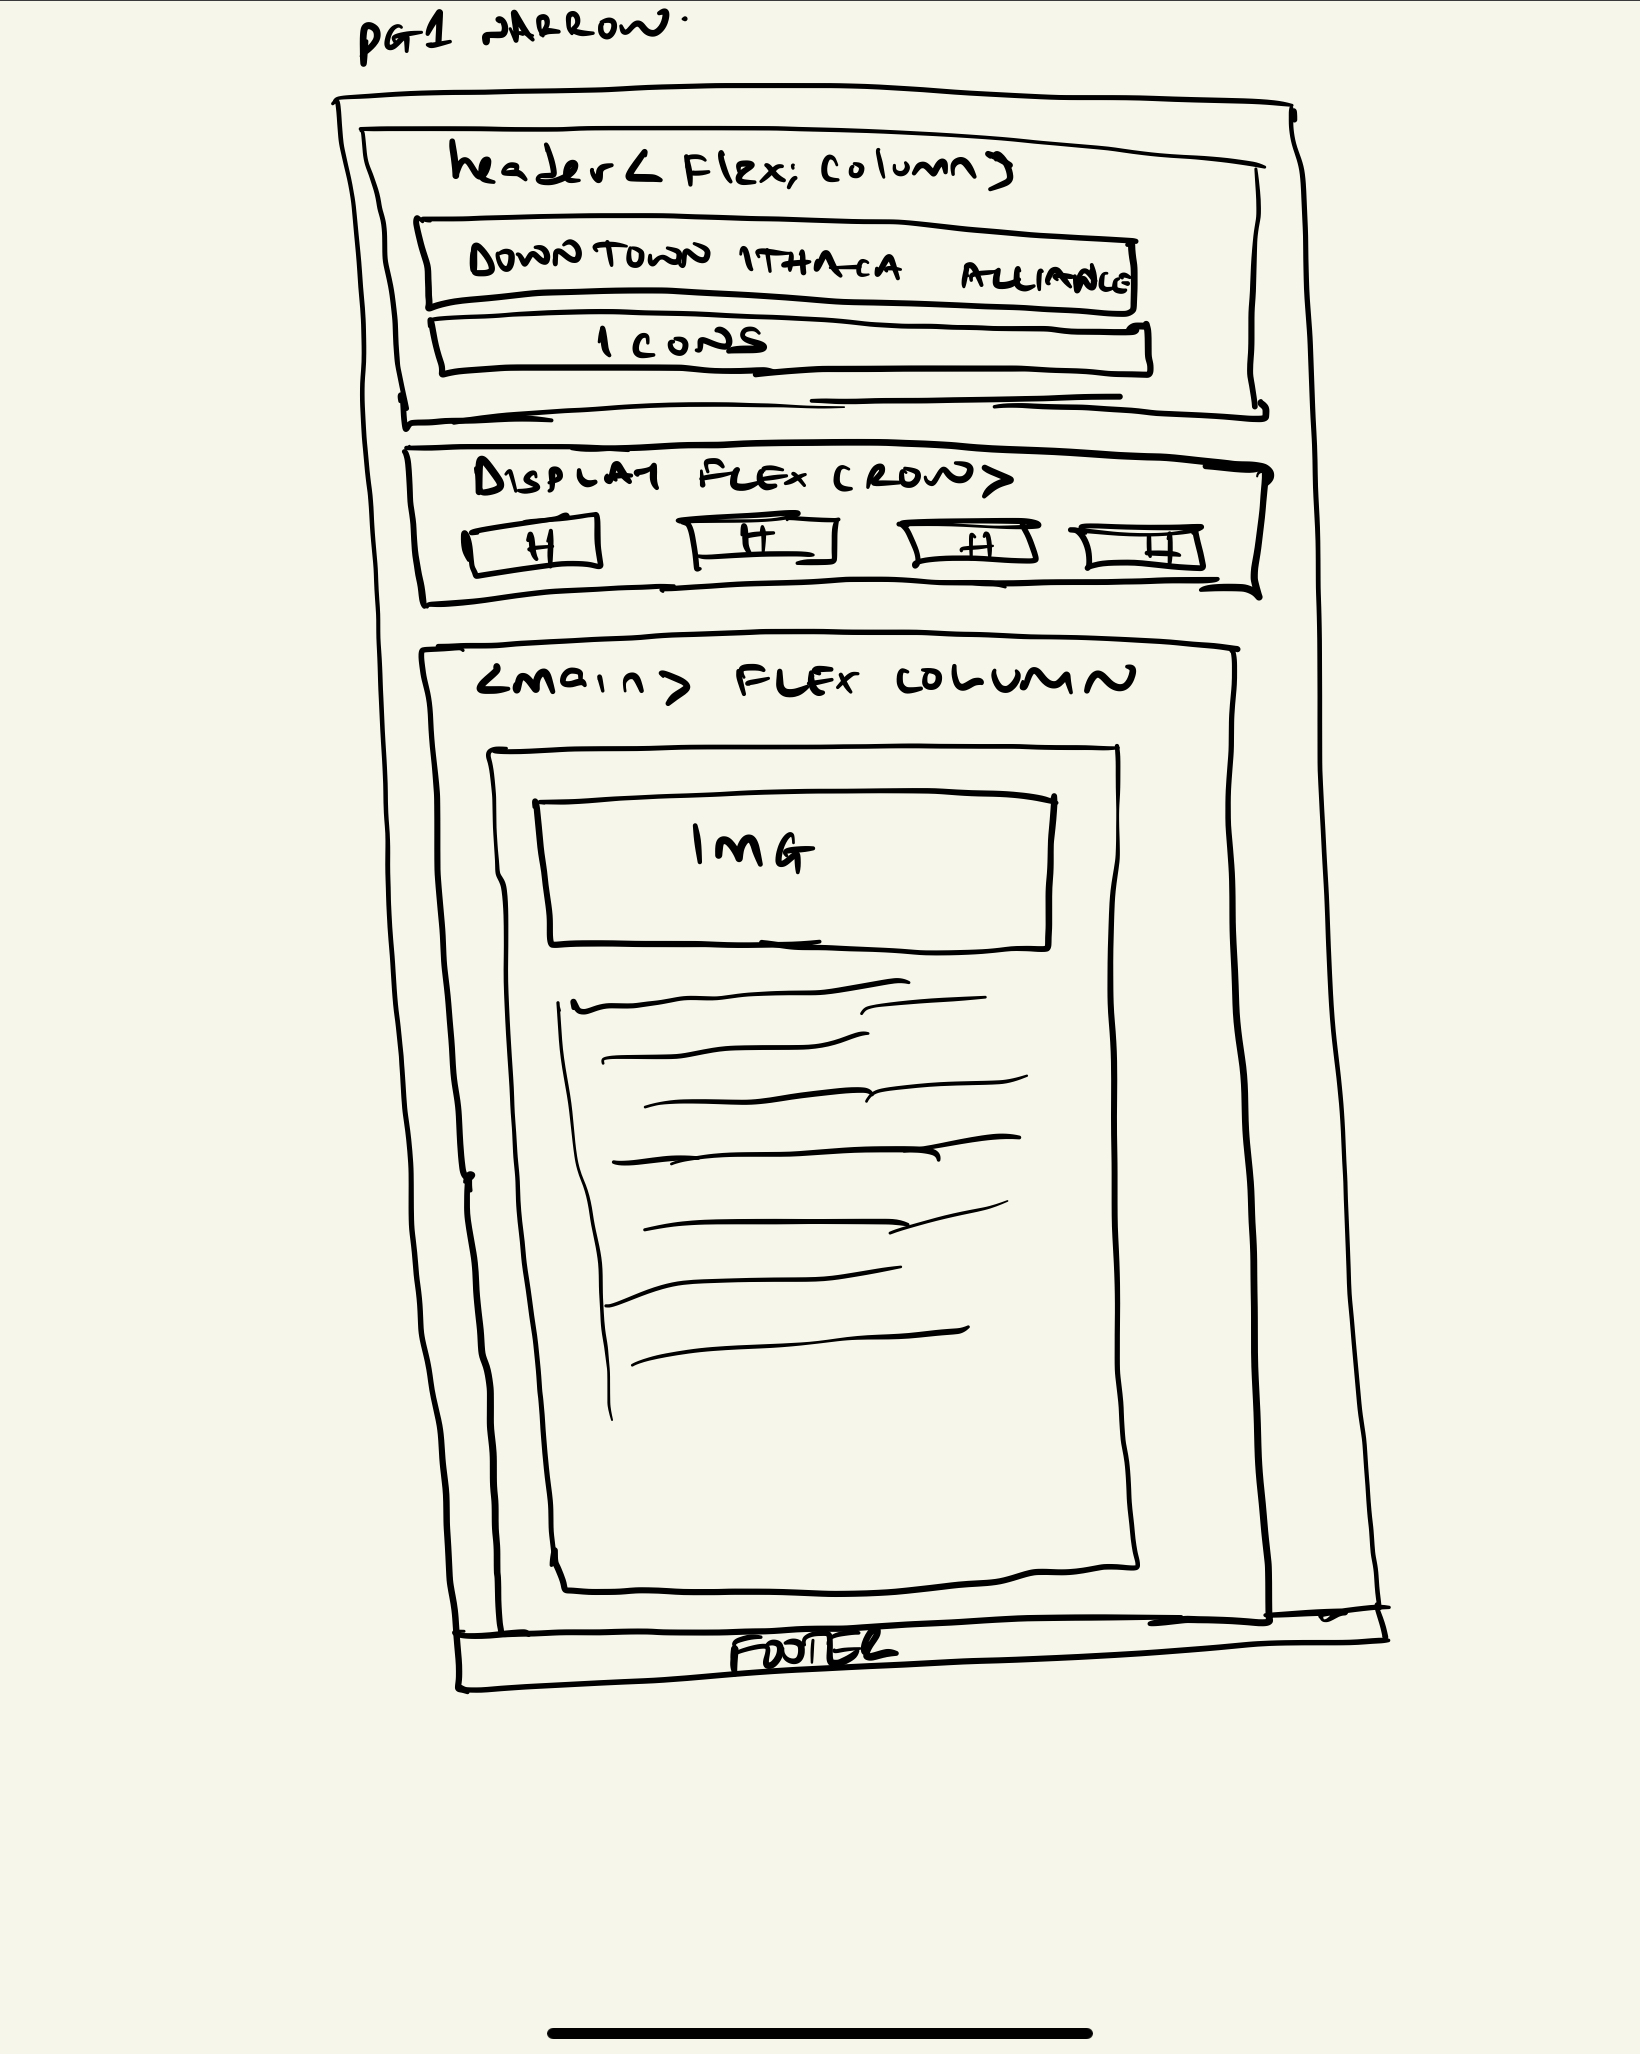 PG1 NARROW.
header < Flex; column >
DOWNTOWN ITHACA ALLIANCE
ICONS
DISPLAY FLEX (ROW>
H H H H
<main> FLEX COLUMN
IMG
FOOTER